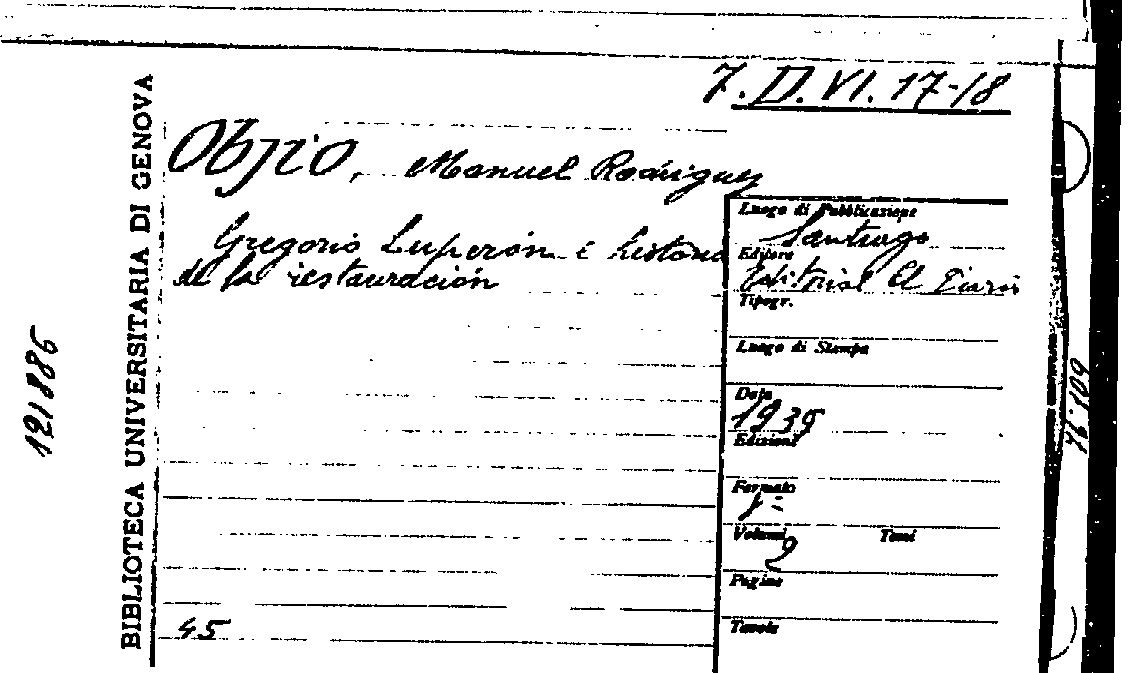 7. D. VI. 17-18
Objio, Manuel Rodriguez
Gregorio Luperón e historia
de la restauración
45
Luogo di Pubblicazione
Santiago
Editore
Editorial El Diario
Tipogr.
Luogo di Stampa
Data
1939
Edizione
Formato
Volumi Tomi
2
Pagine
Tavole
BIBLIOTECA UNIVERSITARIA DI GENOVA
121886
76.109